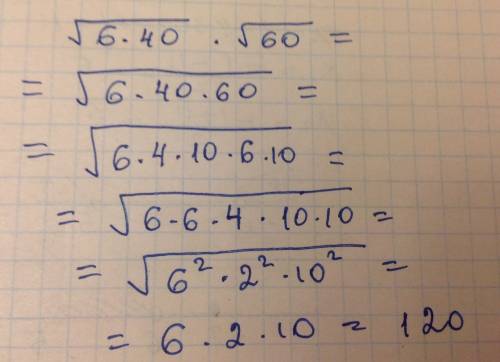 √6·40 · √60 =
= √6·40·60 =
= √6·4·10·6·10 =
= √6·6·4·10·10 =
= √6²·2²·10² =
= 6·2·10 = 120